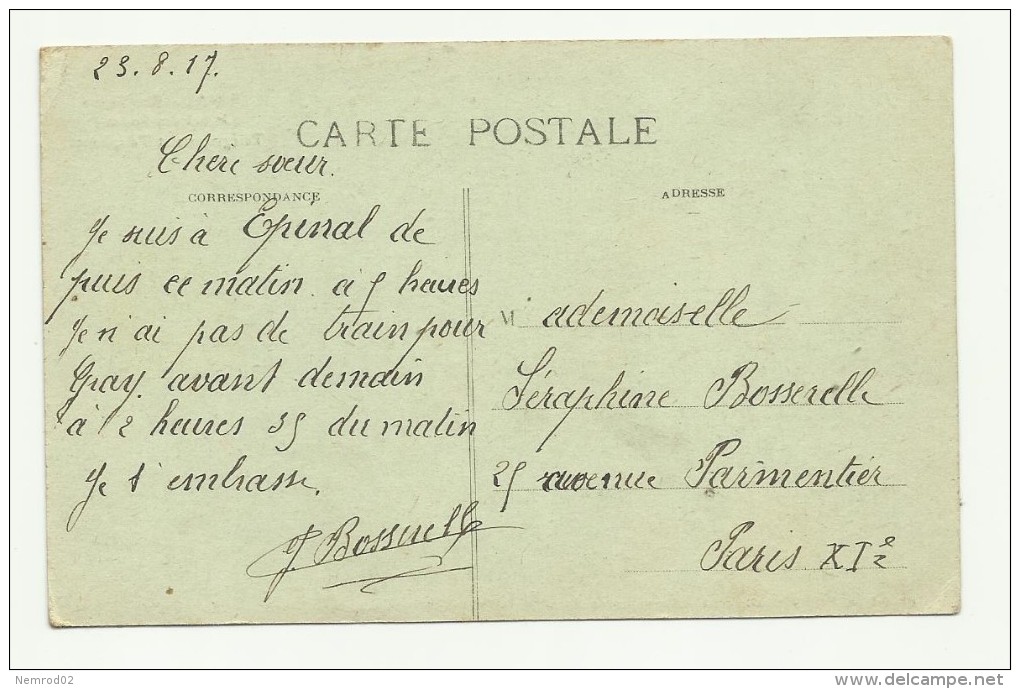 23.8.17.
CARTE POSTALE
Chère sœur.
CORRESPONDANCE
Je suis à Epinal de
puis ce matin à 5 heures
Je n'ai pas de train pour
Gray avant demain
à 2 heures 35 du matin
Je t'embrasse.
J Bosserelle
ADRESSE
Mademoiselle
Séraphine Bosserelle
25 avenue Parmentier
Paris XIe
Nemrod02
delcampe.net